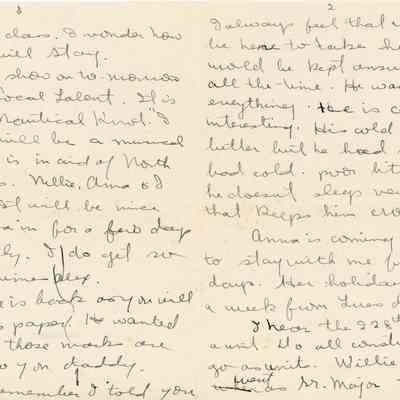 3
class. I wonder how
will stay.
show on to-morrow
local talent. It is
Nautical Knot." I
will be a musical
is in aid of North
s. Nellie, Anna & I
It will be nice
in for a few days
ly. I do get so
Alex.
is back as you will
s paper. He wanted
those marks are
to you daddy.
remember I told you
2
I always feel that
be here to take he
would be kept answ
all the time. He wa
everything. He is c
interesting. His cold
better but he had
bad cold. poor bit
he doesn't sleep ve
that keeps him cro
Anna is coming
to stay with me f
days. Her holidays
a week from Tues d
I hear the 228th
a unit to all const
go as unit. Willie
went as Sr. Major